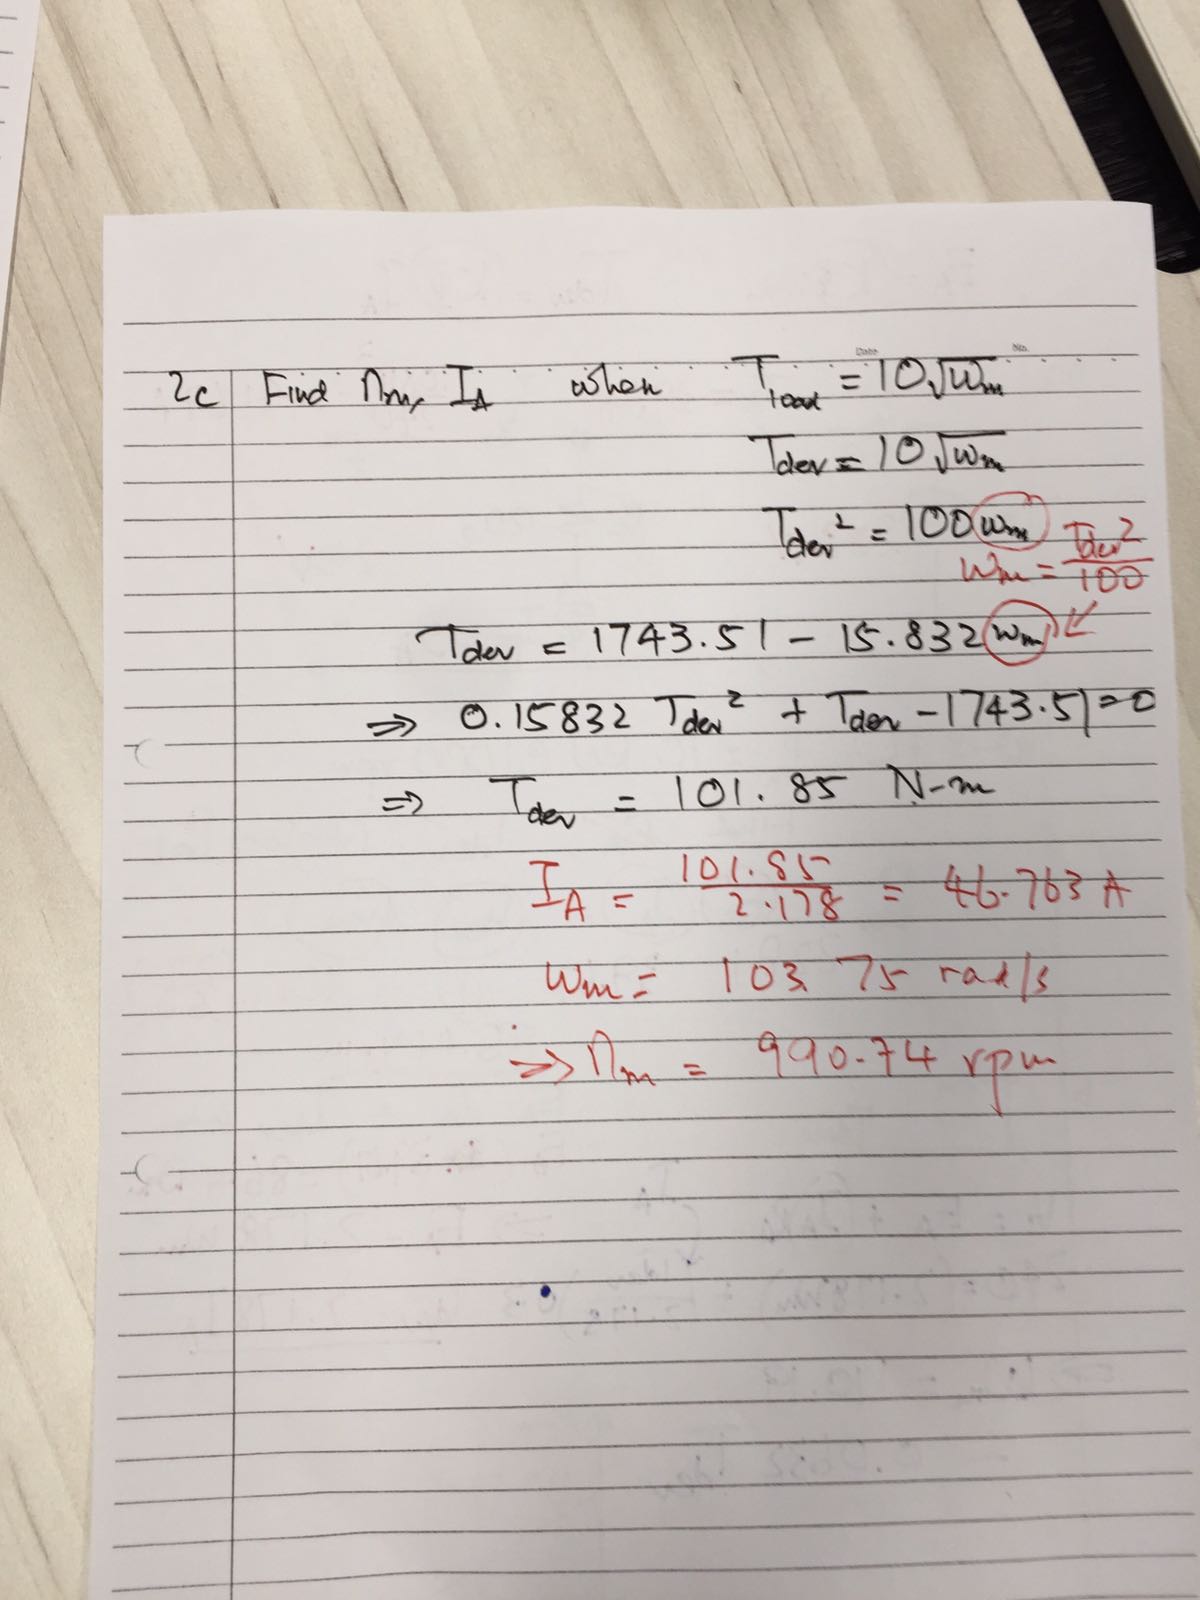 Date No.
2c Find nm, IA when Tload = 10√ωm
Tdev = 10√ωm
Tdev² = 100ωm
ωm = Tdev²/100
Tdev = 1743.51 - 15.832ωm
⇒ 0.15832 Tdev² + Tdev - 1743.51 = 0
⇒ Tdev = 101.85 N-m
IA = 101.85/2.178 = 46.763 A
ωm = 103.75 rad/s
⇒ nm = 990.74 rpm